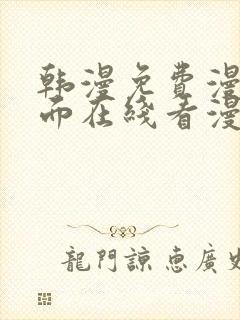 韩漫免费漫
而在线看漫
龍門諒惠廣